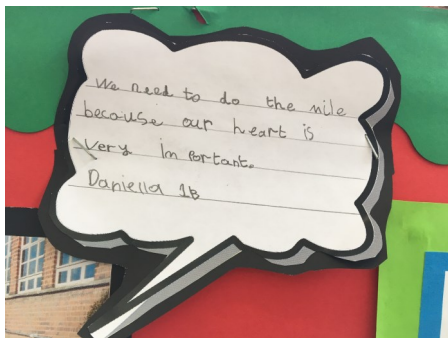 We need to do the mile
because our heart is
very important.
Daniella 1B